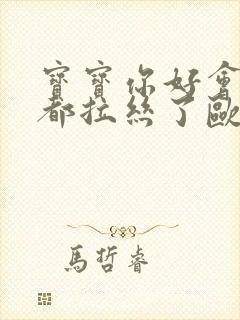 寶寶你好會
都拉絲了歐
馬哲睿